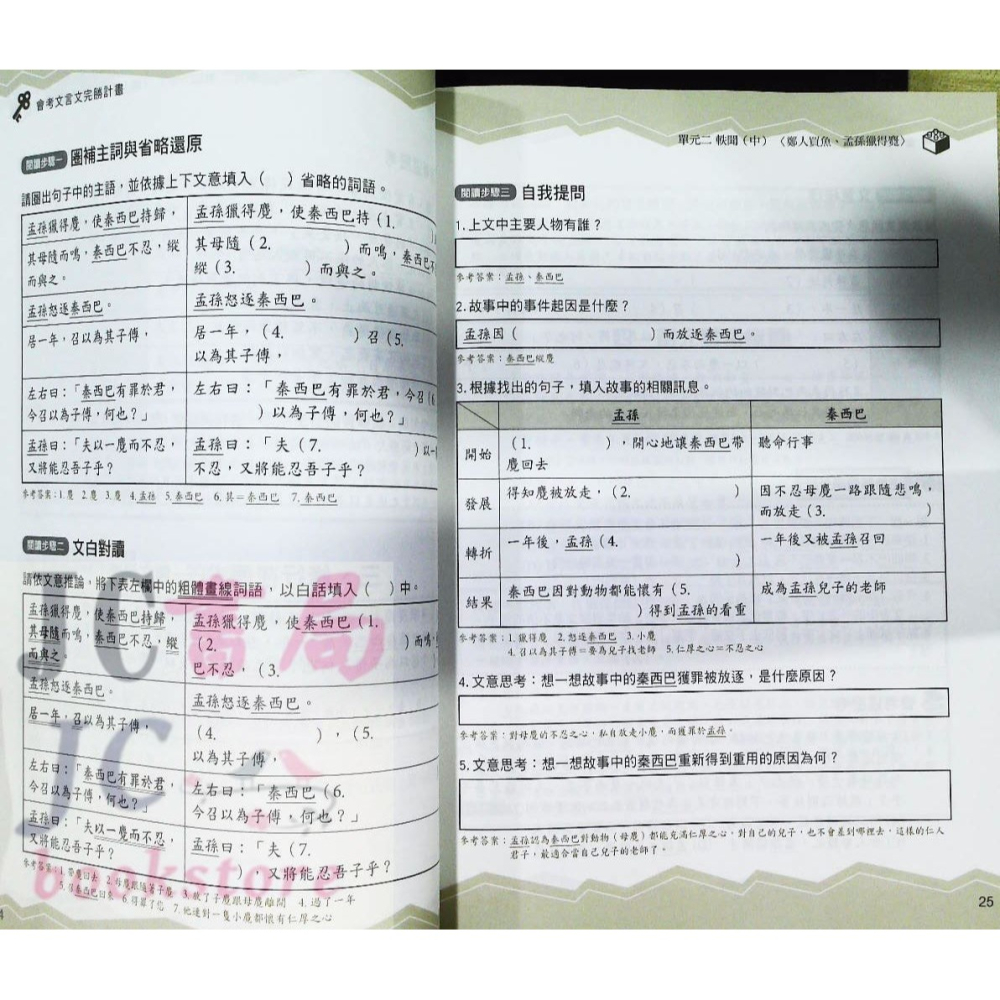 會考文言文完勝計畫
閱讀步驟一 圈補主詞與省略還原
請圈出句子中的主語，並依據上下文意填入（　）省略的詞語。
孟孫獵得麑，使秦西巴持歸，
其母隨而鳴，秦西巴不忍，縱
而與之。
孟孫獵得麑，使秦西巴持（1.
其母隨（2.　）而鳴，秦西巴不
縱（3.　）而與之。
孟孫怒逐秦西巴。
孟孫怒逐秦西巴。
居一年，召以為其子傅，
居一年，（4.　）召（5.
以為其子傅，
左右曰：「秦西巴有罪於君，
今召以為子傅，何也？」
左右曰：「秦西巴有罪於君，今召（6.
）以為子傅，何也？」
孟孫曰：「夫以一麑而不忍，
又將能忍吾子乎？
孟孫曰：「夫（7.　）以一
不忍，又將能忍吾子乎？
參考答案：1.麑 2.麑 3.麑 4.孟孫 5.秦西巴 6.其＝秦西巴 7.秦西巴
閱讀步驟二 文白對讀
請依文意推論，將下表左欄中的粗體畫線詞語，以白話填入（　）中。
孟孫獵得麑，使秦西巴持歸，
其母隨而鳴，秦西巴不忍，縱
而與之。
孟孫獵得麑，使秦西巴（1.
（2.　）而鳴
巴不忍，（3.
孟孫怒逐秦西巴。
孟孫怒逐秦西巴。
居一年，召以為其子傅，
（4.　），（5.
以為其子傅，
左右曰：「秦西巴有罪於君，
今召以為子傅，何也？」
左右曰：「秦西巴（6.
今召以為子傅，何也？」
孟孫曰：「夫以一麑而不忍，
又將能忍吾子乎？
孟孫曰：「夫（7.
），又將能忍吾子乎？
參考答案：1.帶麑回去 2.母麑跟隨著子麑 3.放了子麑跟母麑離開 4.過了一年
5.召秦西巴回來 6.得罪了您 7.他連對一隻小麑都懷有仁厚之心
JC書局
JC
bookstore
單元二 軼聞（中）〈鄭人買魚、孟孫獵得麑〉
閱讀步驟三 自我提問
1.上文中主要人物有誰？
參考答案：孟孫、秦西巴
2.故事中的事件起因是什麼？
孟孫因（　）而放逐秦西巴。
參考答案：秦西巴縱麑
3.根據找出的句子，填入故事的相關訊息。
孟孫 秦西巴
開始
（1.　），開心地讓秦西巴帶
麑回去
聽命行事
發展
得知麑被放走，（2.　）
因不忍母麑一路跟隨悲鳴，
而放走（3.　）
轉折
一年後，孟孫（4.
）
一年後又被孟孫召回
結果
秦西巴因對動物都能懷有（5.
）得到孟孫的看重
成為孟孫兒子的老師
參考答案：1.獵得麑 2.怒逐秦西巴 3.小麑
4.召以為其子傅＝要為兒子找老師 5.仁厚之心＝不忍之心
4.文意思考：想一想故事中的秦西巴獲罪被放逐，是什麼原因？
參考答案：對母麑的不忍之心，私自放走小麑，而獲罪於孟孫。
5.文意思考：想一想故事中的秦西巴重新得到重用的原因為何？
參考答案：孟孫認為秦西巴對動物（母麑）都能充滿仁厚之心，對自己的兒子，也不會差到哪裡去，這樣的仁人
君子，最適合當自己兒子的老師了。
25